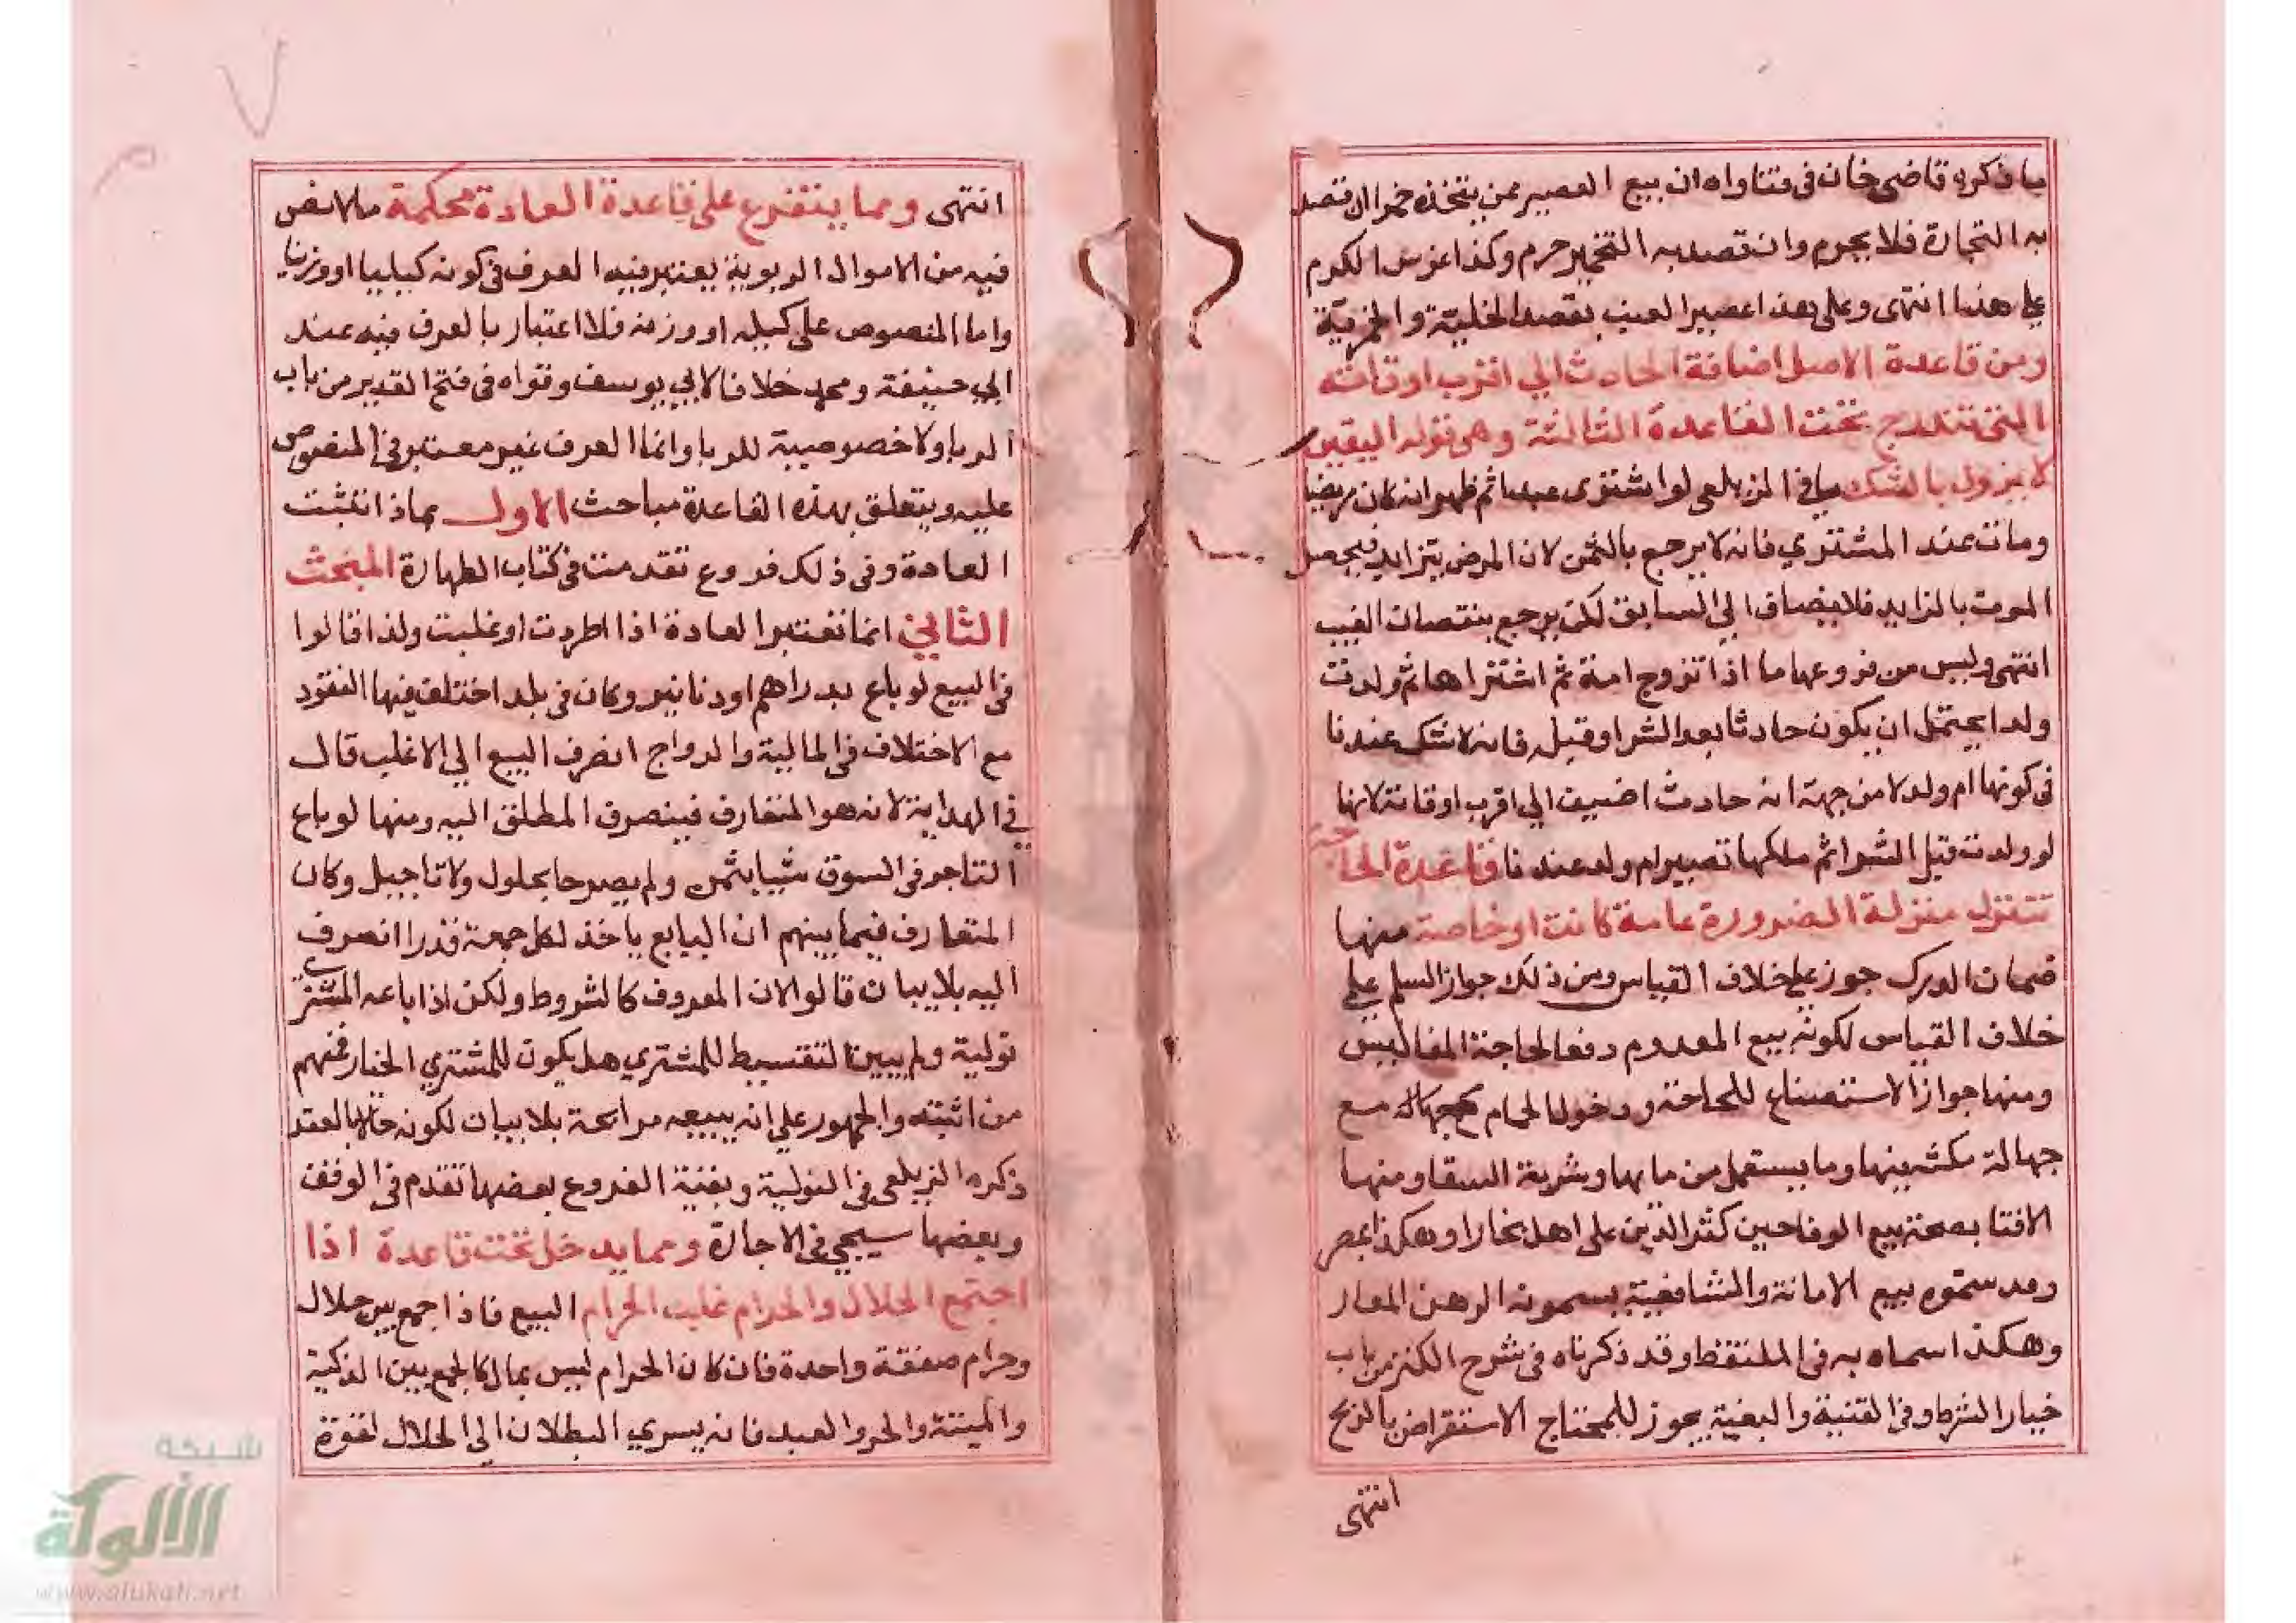 ما ذكره قاضى خان فى فتاواه ان بيع العصير ممن يتخذه خمرا ان قصد
به التجارة فلا يحرم وان قصد به التخمير حرم وكذا غرس الكرم
على هذا انتهى وعلى هذا عصير العنب بقصد الخلية والخمرية
ومن قاعدة الاصل اضافة الحادث الي اقرب اوقاته
التى تندرج تحت القاعدة الثالثة وهى قوله اليقين
لا يزول بالشك ما فى الزيلعى لو اشترى عبدا ثم ظهر انه كان مريضا
ومات عند المشتري فانه لا يرجع بالثمن لان المرض يتزايد فيحصل
الموت بالزايد فلا يضاف الي السابق لكن يرجع بنقصان العيب
انتهى وليس من فروعها ما اذا تزوج امة ثم اشتراها ثم ولدت
ولدا يحتمل ان يكون حادثا بعد الشرا او قبله فانه لا شك عندنا
فى كونها ام ولد لا من جهة انه حادث اضيف الي اقرب اوقاته لانها
لو ولدت قبل الشرا ثم ملكها تصير ام ولد عندنا قاعدة الحاجة
تتنزل منزلة الضرورة عامة كانت او خاصة منها
ضمان الدرك جوز على خلاف القياس ومن ذلك جواز السلم على
خلاف القياس لكونه بيع المعدوم دفعا لحاجة المفاليس
ومنها جواز الاستصناع للحاجة ودخول الحمام مع جهالة مع
جهالة مكثه فيها وما يستعمل من مايها وشربة السقا ومنها
الافتا بصحة بيع الوفا حين كثر الدين على اهل بخارا وهكذا بمصر
وقد سموه بيع الامانة والشافعية يسمونه الرهن المعار
وهكذا سماه به فى الملتقط وقد ذكرناه فى شرح الكنز من باب
خيار الشرط وفى القنية والبغية يجوز للمحتاج الاستقراض بالربح
انتهى
انتهى ومما يتفرع على قاعدة العادة محكمة ما لا نص
فيه من الاموال الربوية يعتبر فيه العرف فى كونه كيليا او وزنيا
واما المنصوص على كيله او وزنه فلا اعتبار بالعرف فيه عند
ابي حنيفة ومحمد خلافا لابي يوسف وقواه فى فتح القدير من باب
الربا ولا خصوصية للربا وانما العرف غير معتبر فى المنصوص
عليه ويتعلق بهذه القاعدة مباحث الاول بماذا تثبت
العادة وفى ذلك فروع تقدمت فى كتاب الطهارة المبحث
الثاني انما تعتبر العادة اذا اطردت او غلبت ولذا قالوا
فى البيع لو باع بدراهم او دنانير وكان فى بلد اختلف فيها النقود
مع الاختلاف فى المالية والرواج انصرف البيع الي الاغلب قال
فى الهداية لانه هو المتعارف فينصرف المطلق اليه ومنها لو باع
التاجر فى السوق شيا بثمن ولم يصرحا بحلول ولا تاجيل وكان
المتعارف فيما بينهم ان البايع ياخذ لكل جمعة قدرا انصرف
اليه بلا بيان قالوا لان المعروف كالمشروط ولكن اذا باعه المشتري
تولية ولم يبين التقسيط للمشتري هل يكون للمشتري الخيار فمنهم
من اثبته والجمهور علي انه يبيعه مرابحة بلا بيان لكونه حالا بالعقد
ذكره الزيلعى فى التولية وبقية الفروع بعضها تقدم فى الوقف
وبعضها سيجي فى الاجارة ومما يدخل تحت قاعدة اذا
اجتمع الحلال والحرام غلب الحرام البيع فاذا جمع بين حلال
وحرام صفقة واحدة فان كان الحرام ليس بمال كالجمع بين الذكية
والميتة والحر والعبد فانه يسري البطلان الي الحلال لقوة
شبكة
الألوكة
www.alukah.net